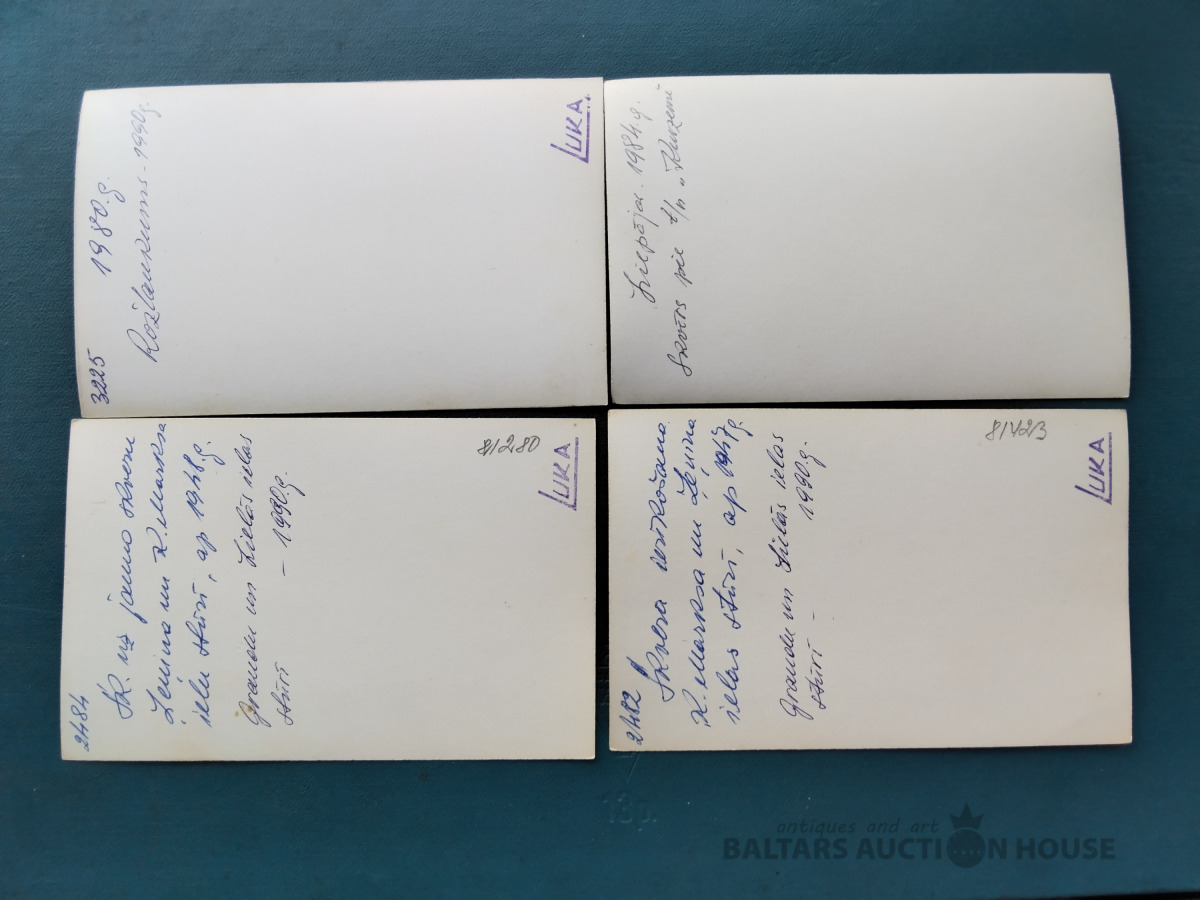 3225
1980.g.
Rožlaukums - 1990g.
LIKA
Liepājā. 1984.g.
Skvērs pie t/n „Kurzemi
2484
Sk. uz jauno skveru
Ļeņina un K. Marksa
ielu stūrī, ap 1948.g.
Graudu un Lielās ielas
stūrī - 1990.g.
81280
LIKA
2482
Skvera ierīkošana
K. Marksa un Ļeņina
ielas stūrī, ap 1947g.
Graudu un Lielās ielas
stūrī - 1990.g.
LIKA
antiques and art
BALTARS AUCTION HOUSE